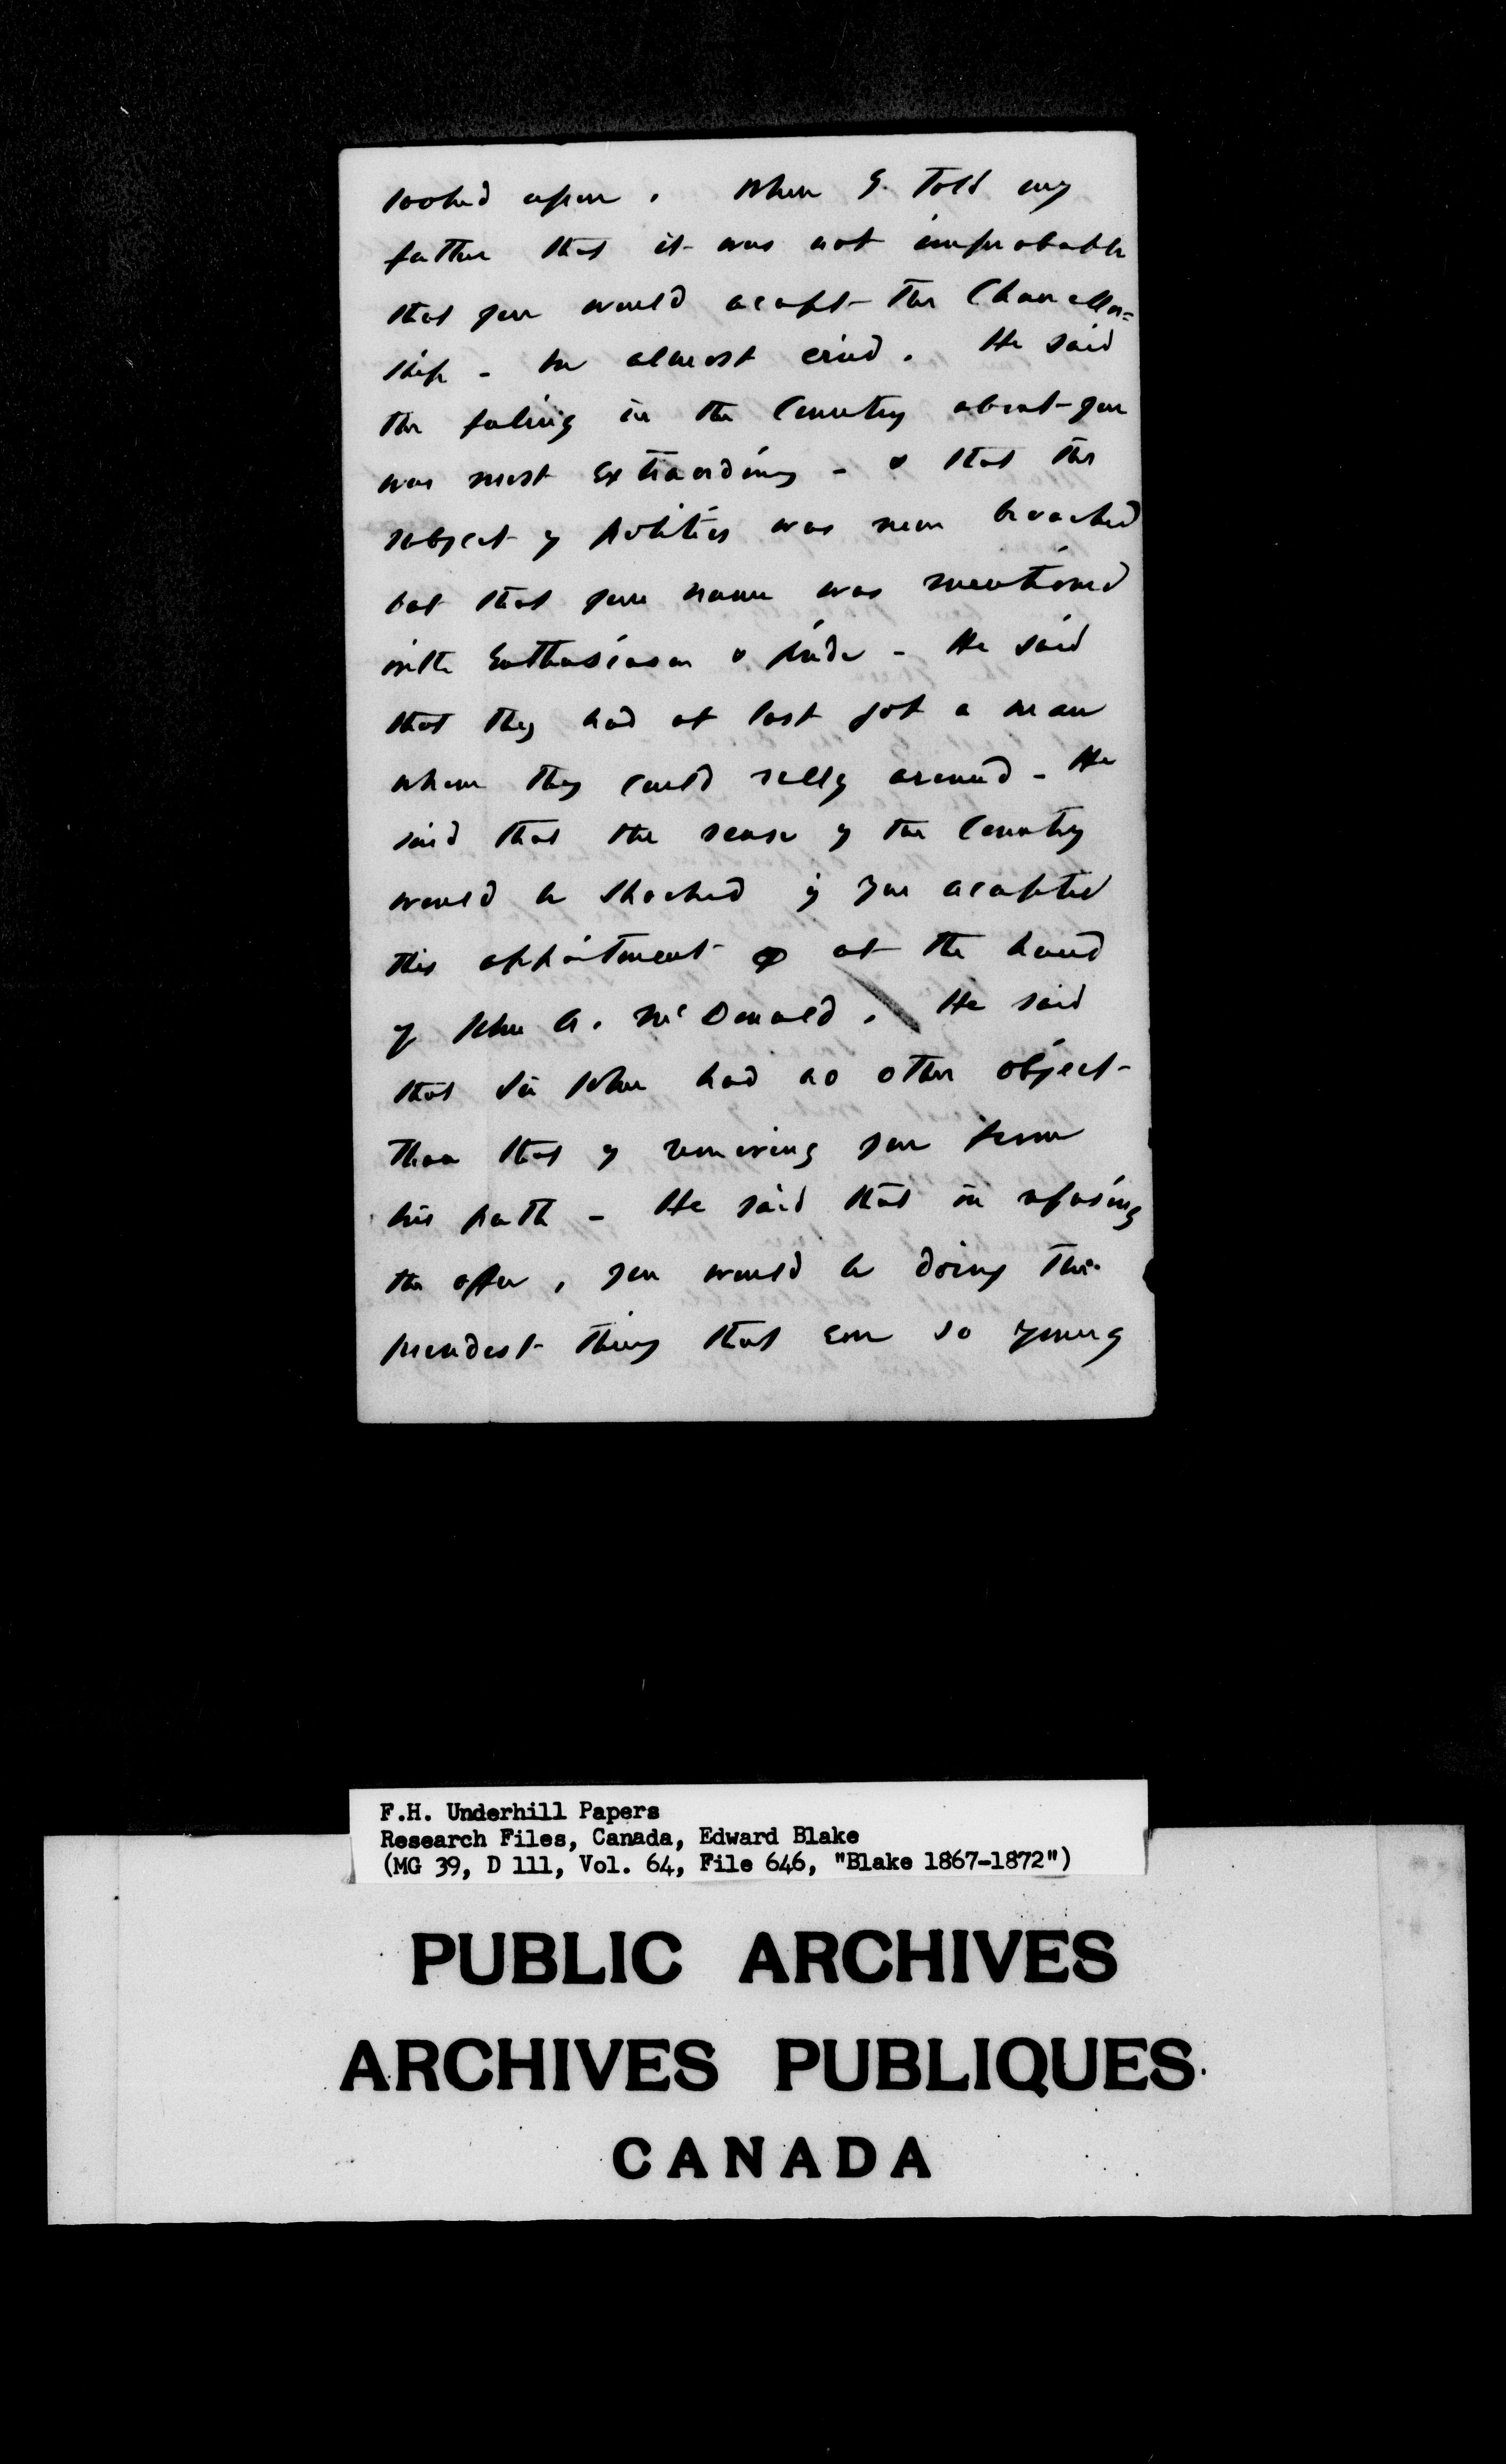 looked upon. When I told my
father that it was not improbable
that you would accept the Chancellor=
ship - he almost cried. He said
the feeling in the Country about you
was most extraordinary - & that the
subject of politics was never broached
but that your name was mentioned
with Enthusiasm & pride - He said
that they had at last got a man
whom they could rally around - He
said that the sense of the Country
would be shocked if you accepted
this appointment at the hand
of John A. McDonald. He said
that Sir John had no other object
than that of removing you from
his path - He said that in refusing
the offer, you would be doing the
proudest thing that ever so young
F.H. Underhill Papers
Research Files, Canada, Edward Blake
(MG 39, D 111, Vol. 64, File 646, "Blake 1867-1872")
PUBLIC ARCHIVES
ARCHIVES PUBLIQUES
CANADA